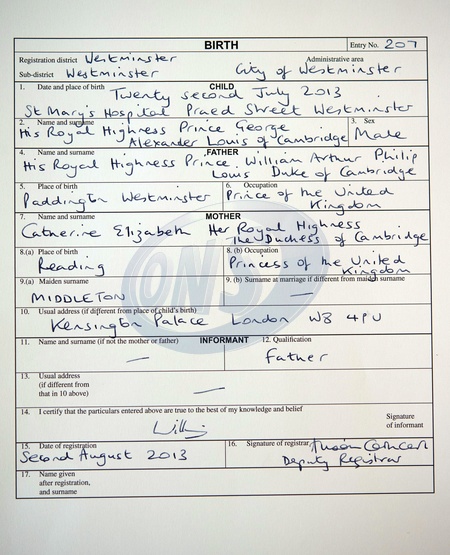 BIRTH Entry No. 207
Registration district Westminster Administrative area
Sub-district Westminster City of Westminster
1. Date and place of birth CHILD
Twenty second July 2013
St Mary's Hospital Praed Street Westminster
2. Name and surname 3. Sex
His Royal Highness Prince George
Alexander Louis of Cambridge Male
4. Name and surname FATHER
His Royal Highness Prince William Arthur Philip
Louis Duke of Cambridge
5. Place of birth 6. Occupation
Paddington Westminster Prince of the United
Kingdom
7. Name and surname MOTHER
Catherine Elizabeth Her Royal Highness
The Duchess of Cambridge
8.(a) Place of birth 8. (b) Occupation
Reading Princess of the United
Kingdom
9.(a) Maiden surname 9. (b) Surname at marriage if different from maiden surname
MIDDLETON —
10. Usual address (if different from place of child's birth)
Kensington Palace London W8 4PU
INFORMANT
11. Name and surname (if not the mother or father) 12. Qualification
— Father
13. Usual address
(if different from
that in 10 above) —
14. I certify that the particulars entered above are true to the best of my knowledge and belief
Signature
of informant
15. Date of registration 16. Signature of registrar
Second August 2013
Deputy Registrar
17. Name given
after registration,
and surname
ONS